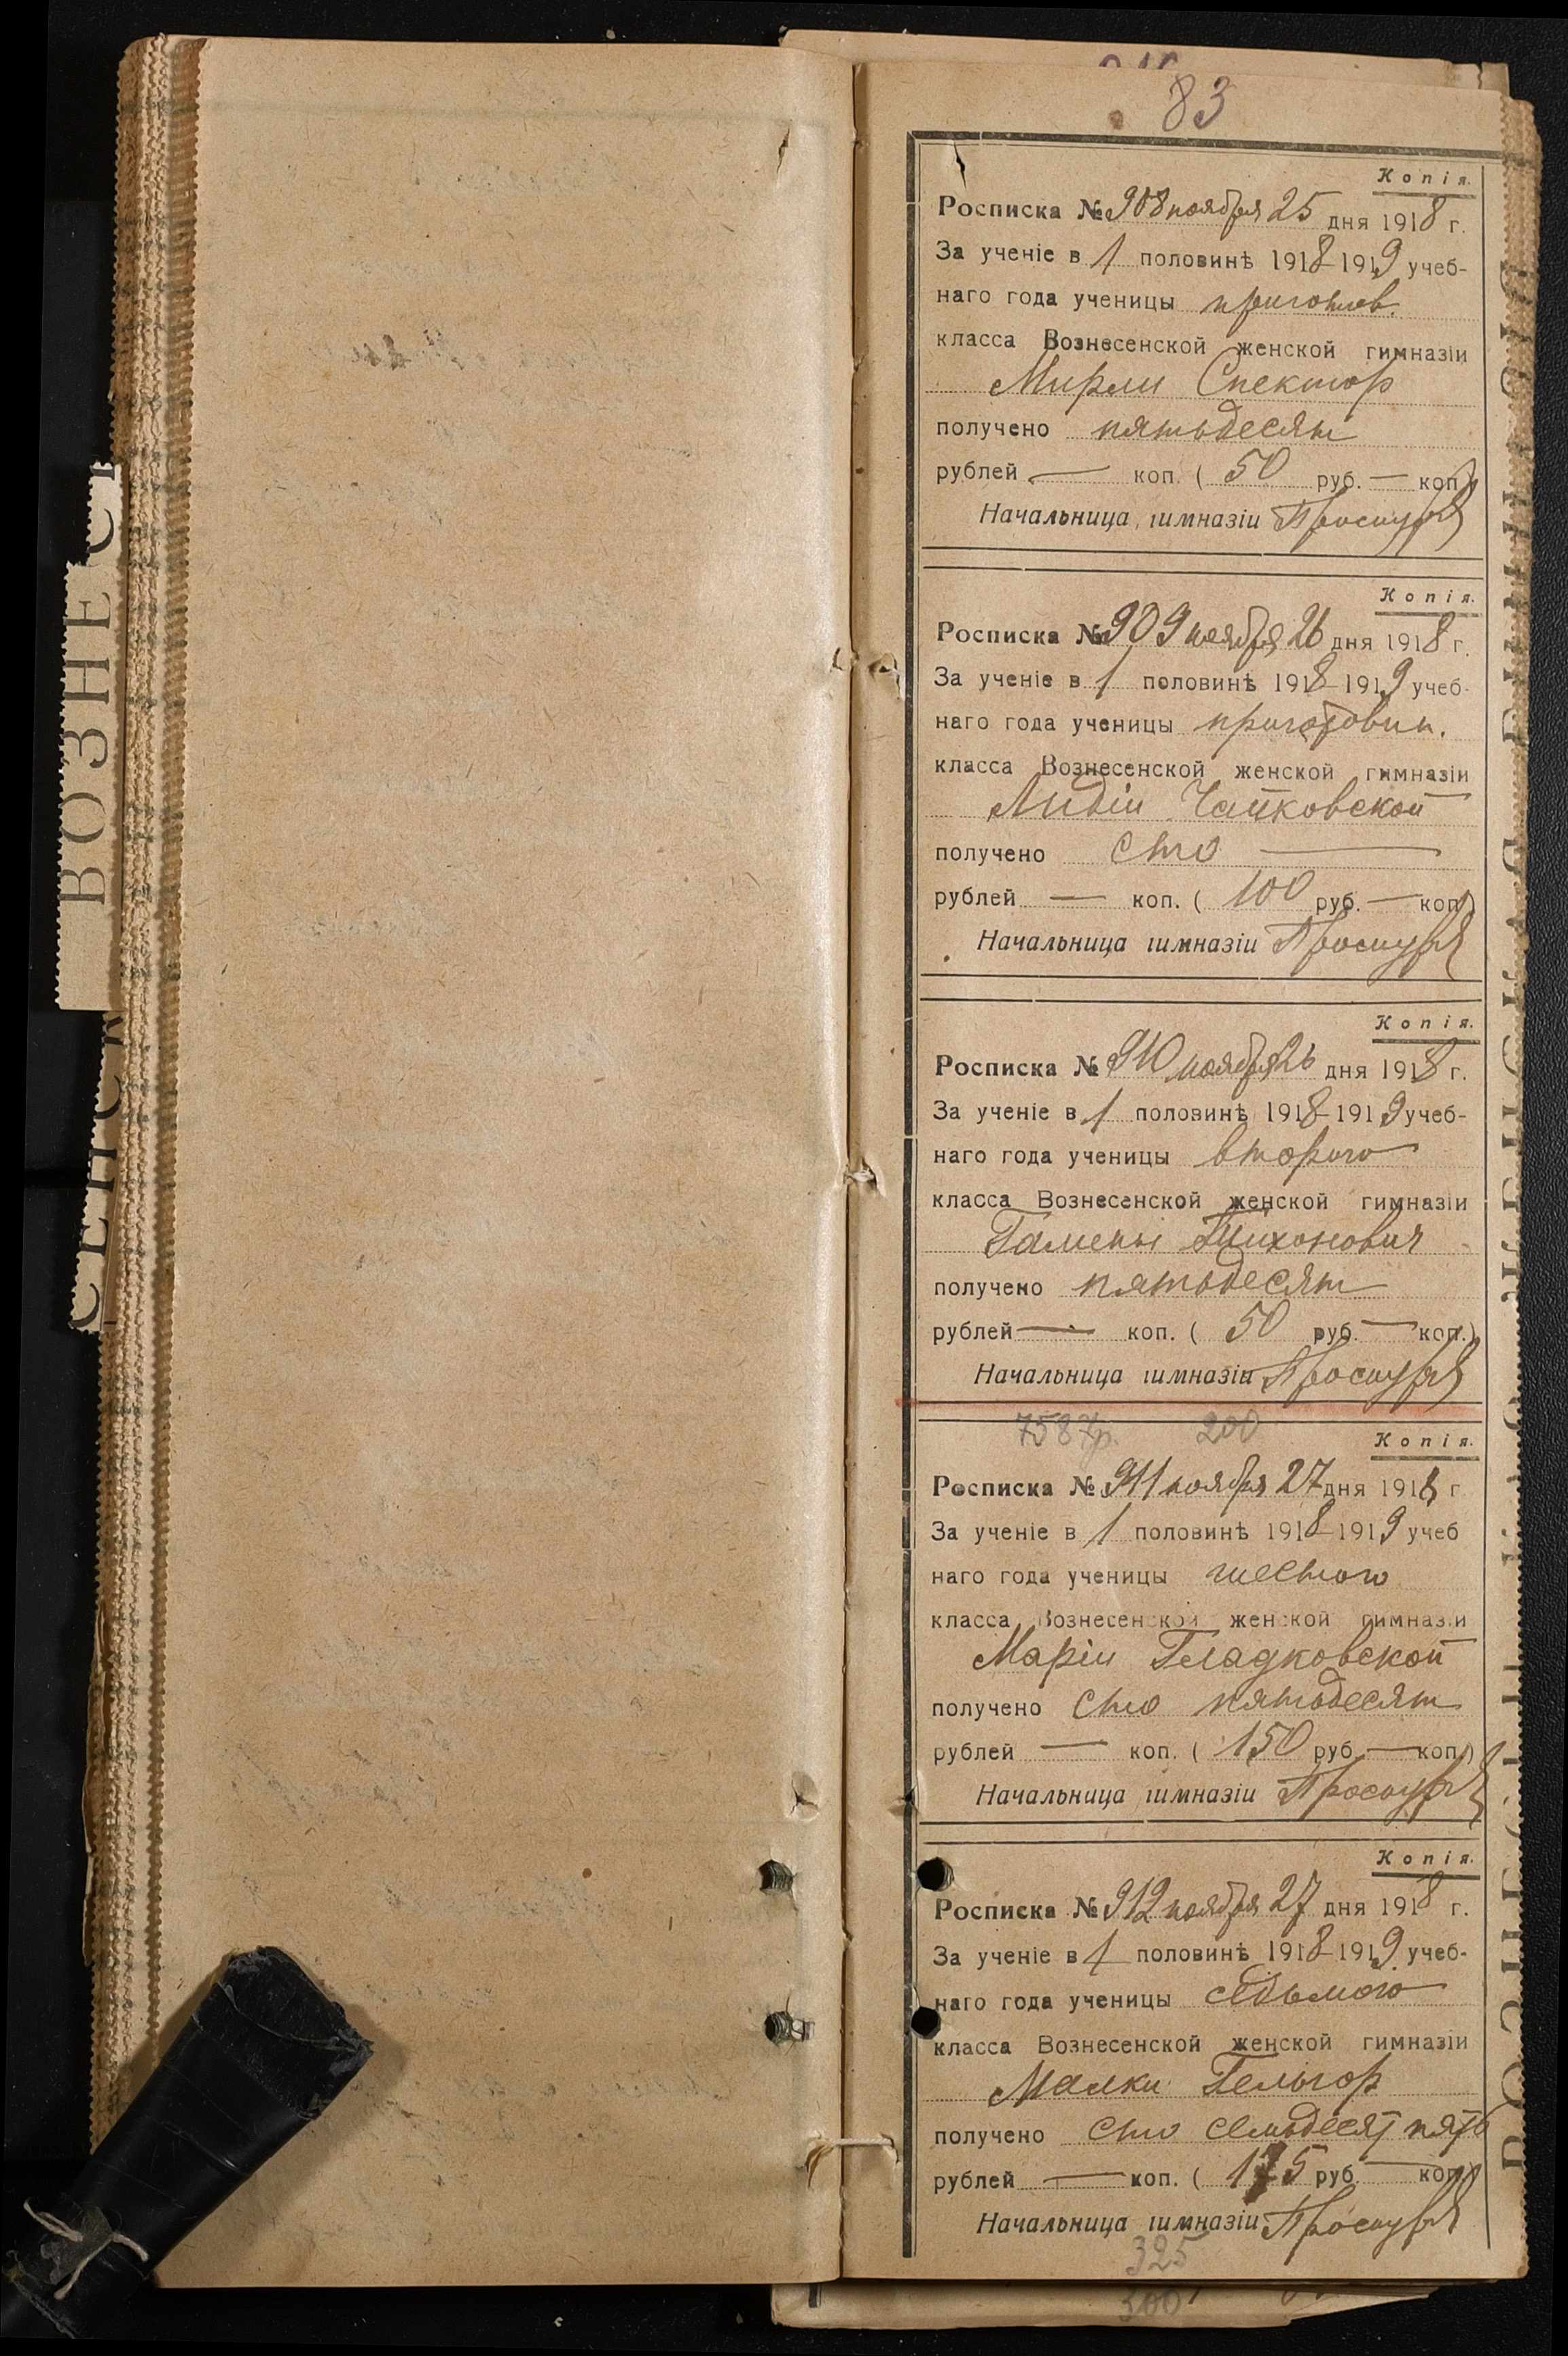 83
Копія.
Росписка № 908 ноября 25 дня 1918 г.
За ученіе в 1 половинѣ 1918-1919 учеб-
наго года ученицы приготов.
класса Вознесенской женской гимназіи
Мирли Спектор
получено пятьдесят
рублей — коп. ( 50 руб. — коп.)
Начальница гимназіи
Копія.
Росписка № 909 ноября 26 дня 1918 г.
За ученіе в 1 половинѣ 1918-1919 учеб-
наго года ученицы приготовит.
класса Вознесенской женской гимназіи
Лидіи Чайковской
получено сто —
рублей — коп. ( 100 руб. — коп.)
Начальница гимназіи
Копія.
Росписка № 910 ноября 26 дня 1918 г.
За ученіе в 1 половинѣ 1918-1919 учеб-
наго года ученицы второго
класса Вознесенской женской гимназіи
Тихонович
получено пятьдесят
рублей — коп. ( 50 руб. — коп.)
Начальница гимназіи
7587р. 200
Копія.
Росписка № 911 ноября 27 дня 1918 г
За ученіе в 1 половинѣ 1918-1919 учеб
наго года ученицы шестого
класса Вознесенской женской гимназіи
Маріи Гладковской
получено сто пятьдесят
рублей — коп. ( 150 руб. — коп.)
Начальница гимназіи
Копія.
Росписка № 912 ноября 27 дня 1918 г.
За ученіе в 1 половинѣ 1918-1919 учеб-
наго года ученицы седьмого
класса Вознесенской женской гимназіи
Малки Гельгор
получено сто семьдесят пять
рублей — коп. ( 175 руб. — коп.)
Начальница гимназіи
325
300
ВОЗНЕС